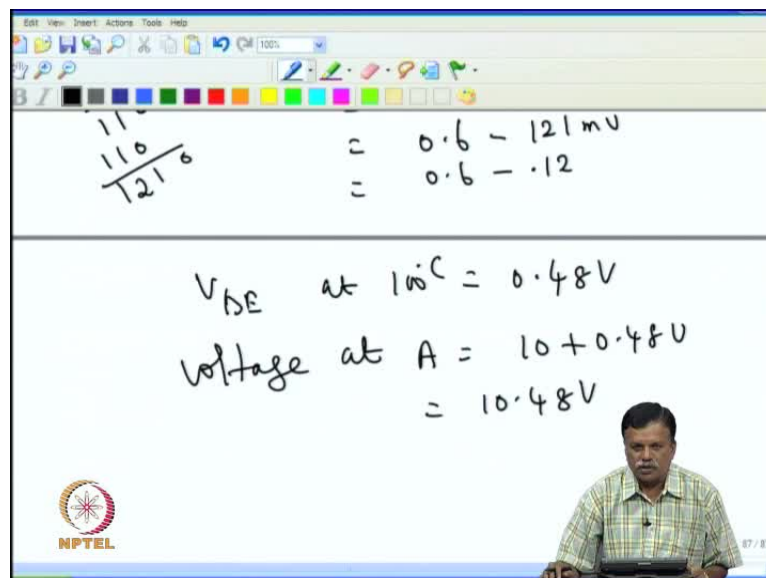 Edit View Insert Actions Tools Help
100%
B I
110
110
1210
= 0.6 - 121 mV
= 0.6 - .12
VBE at 100°C = 0.48V
voltage at A = 10 + 0.48V
= 10.48V
NPTEL